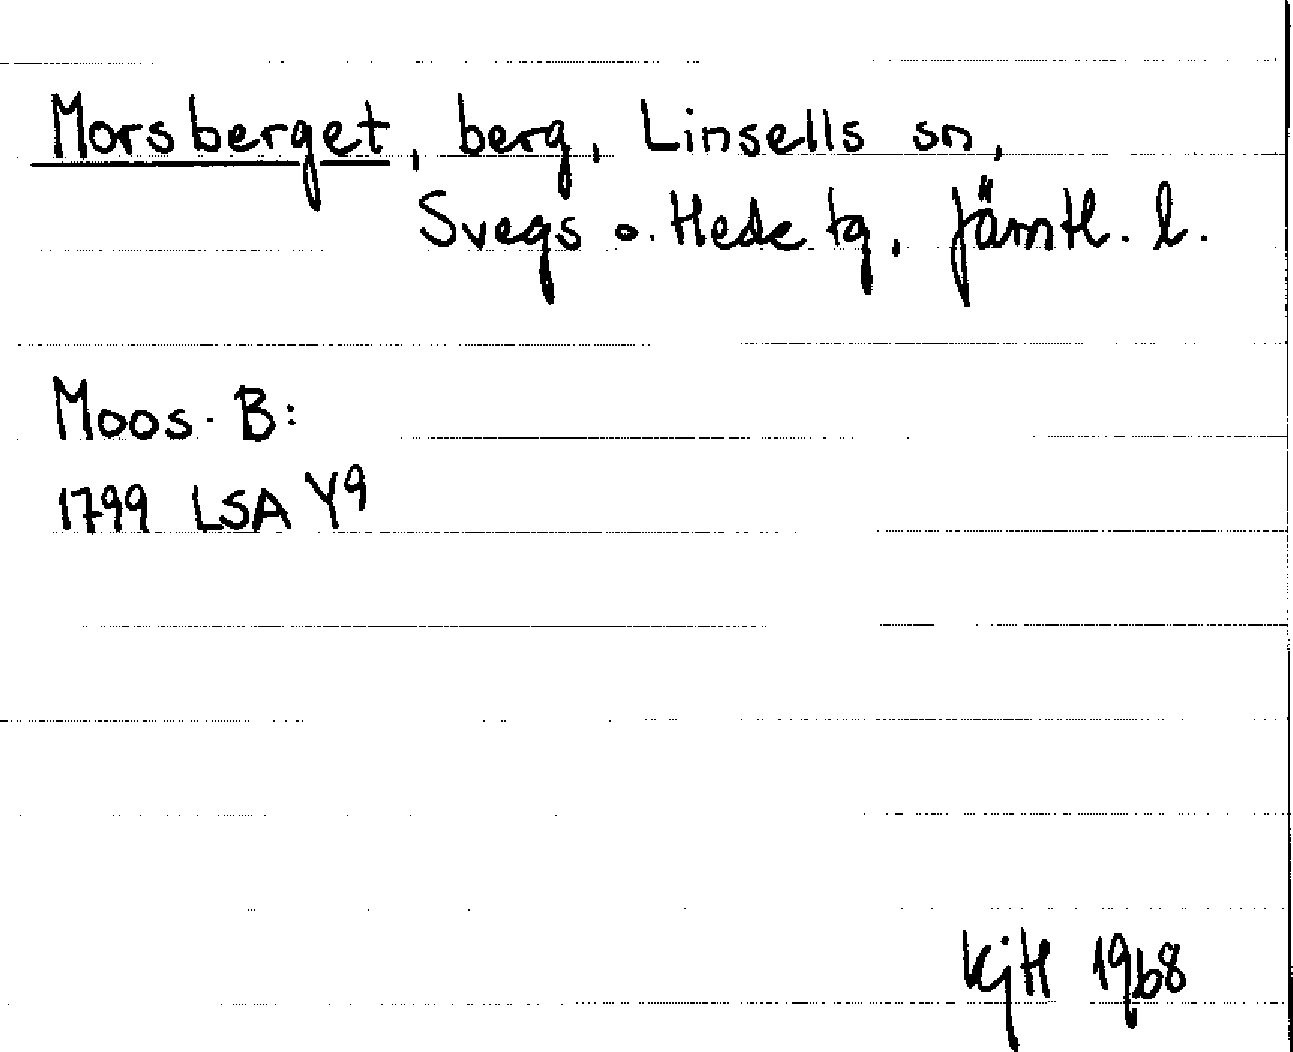 Morsberget, berg, Linsells sn,
Svegs o. Hede tg, Jämtl. l.
Moos. B:
1799 LSA Y9
KjH 1968